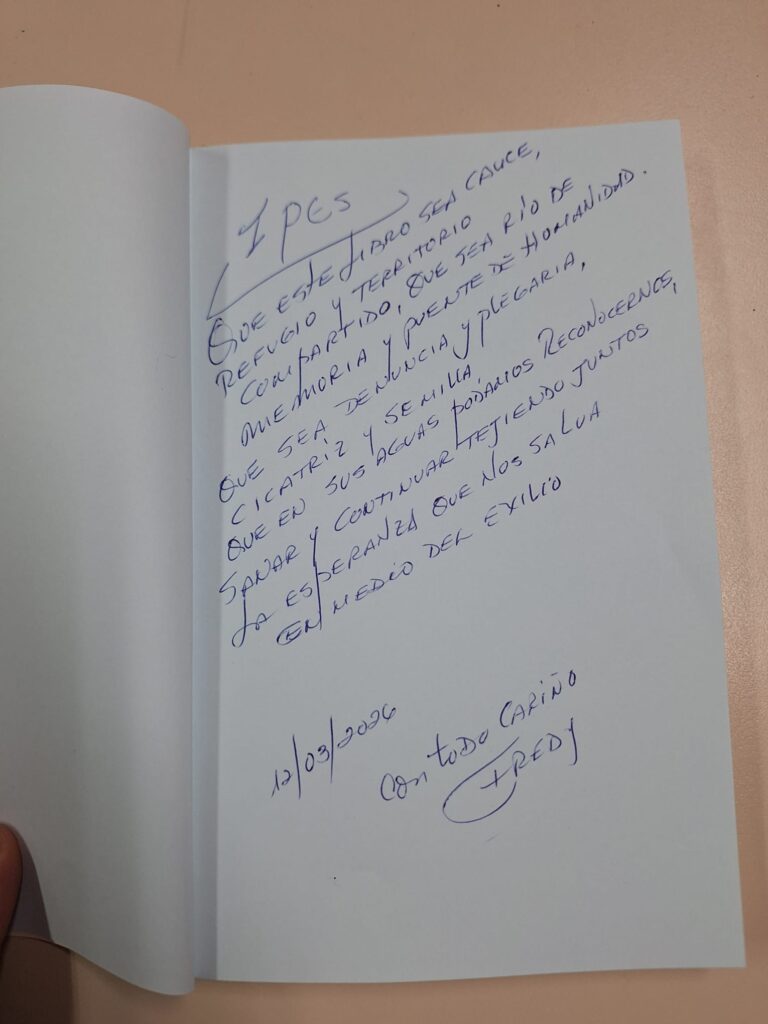 IPES
QUE ESTE LIBRO SEA CAUCE,
REFUGIO Y TERRITORIO
COMPARTIDO, QUE SEA RÍO DE
MEMORIA Y PUENTE DE HUMANIDAD.
QUE SEA DENUNCIA Y PLEGARIA,
CICATRIZ Y SEMILLA
QUE EN SUS AGUAS PODAMOS RECONOCERNOS,
SANAR Y CONTINUAR TEJIENDO JUNTOS
LA ESPERANZA QUE NOS SALVA
EN MEDIO DEL EXILIO
12/03/2026
CON TODO CARIÑO
FREDY